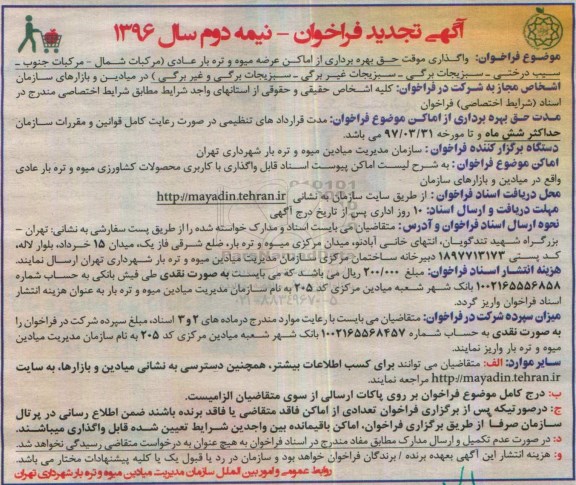 آگهی تجدید فراخوان – نیمه دوم سال ۱۳۹۶
موضوع فراخوان: واگذاری موقت حق بهره برداری از اماکن عرضه میوه و تره بار عادی (مرکبات شمال – مرکبات جنوب –
سیب درختی – سبزیجات برگی – سبزیجات غیر برگی – سبزیجات برگی و غیر برگی) در میادین و بازارهای سازمان
اشخاص مجاز به شرکت در فراخوان: کلیه اشخاص حقیقی و حقوقی از استانهای واجد شرایط مطابق شرایط اختصاصی مندرج در
اسناد (شرایط اختصاصی) فراخوان
مدت حق بهره برداری از اماکن موضوع فراخوان: مدت قرارداد های تنظیمی در صورت رعایت کامل قوانین و مقررات سازمان
حداکثر شش ماه و تا مورخه ۹۷/۰۳/۳۱ می باشد.
دستگاه برگزار کننده فراخوان: سازمان مدیریت میادین میوه و تره بار شهرداری تهران
اماکن موضوع فراخوان: به شرح لیست اماکن پیوست اسناد قابل واگذاری با کاربری محصولات کشاورزی میوه و تره بار عادی
واقع در میادین و بازارهای سازمان
محل دریافت اسناد فراخوان: از طریق سایت سازمان به نشانی http://mayadin.tehran.ir
مهلت دریافت و ارسال اسناد: ۱۰ روز اداری پس از تاریخ درج آگهی
نحوه ارسال اسناد فراخوان و آدرس: متقاضیان می بایست اسناد و مدارک خواسته شده را از طریق پست سفارشی به نشانی: تهران –
بزرگراه شهید تندگویان، انتهای خانی آبادنو، میدان مرکزی میوه و تره بار، ضلع شرقی فاز یک، میدان ۱۵ خرداد، بلوار لاله،
کد پستی ۱۸۹۷۷۱۳۱۷۳ دبیرخانه ساختمان مرکزی سازمان مدیریت میادین میوه و تره بار شهرداری تهران ارسال نمایند.
هزینه انتشار اسناد فراخوان: مبلغ ۲۰۰/۰۰۰ ریال می باشد که می بایست به صورت نقدی طی فیش بانکی به حساب شماره
۱۰۰۲۱۶۵۵۵۶۸۵۸ بانک شهر شعبه میادین مرکزی کد ۲۰۵ به نام سازمان مدیریت میادین میوه و تره بار به عنوان هزینه انتشار
اسناد فراخوان واریز گردد.
میزان سپرده شرکت در فراخوان: متقاضیان می بایست با رعایت موارد مندرج درماده های ۲ و ۳ اسناد، مبلغ سپرده شرکت در فراخوان را
به صورت نقدی به حساب شماره ۱۰۰۲۱۶۵۵۶۸۴۵۷ بانک شهر شعبه میادین مرکزی کد ۲۰۵ به نام سازمان مدیریت میادین
میوه و تره بار واریز نمایند.
سایر موارد: الف: متقاضیان می توانند برای کسب اطلاعات بیشتر، همچنین دسترسی به نشانی میادین و بازارها، به سایت
http://mayadin.tehran.ir مراجعه نمایند.
ب: درج کامل موضوع فراخوان بر روی پاکات ارسالی از سوی متقاضیان الزامیست.
ج: درصورتیکه پس از برگزاری فراخوان تعدادی از اماکن فاقد متقاضی یا فاقد برنده باشند ضمن اطلاع رسانی در پرتال
سازمان صرفا از طریق برگزاری فراخوان، اماکن باقیمانده بین واجدین شرایط تعیین شده قابل واگذاری میباشند.
د: در صورت عدم تکمیل و ارسال مدارک مطابق مفاد مندرج در اسناد فراخوان به هیچ عنوان به درخواست متقاضی رسیدگی نخواهد شد.
و: هزینه انتشار این آگهی بعهده برنده / برندگان فراخوان خواهد بود و سازمان در رد یا قبول یک یا کلیه پیشنهادات مختار می باشد.
روابط عمومی و امور بین الملل سازمان مدیریت میادین میوه و تره بار شهرداری تهران